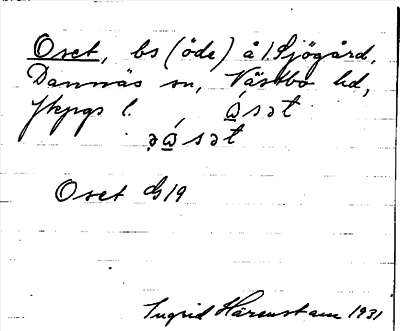 Oset, bs (öde) å 1. Sjögård,
Dannäs sn, Västbo hd,
Jkpgs l.
Oset
Ingrid Härenstam 1931